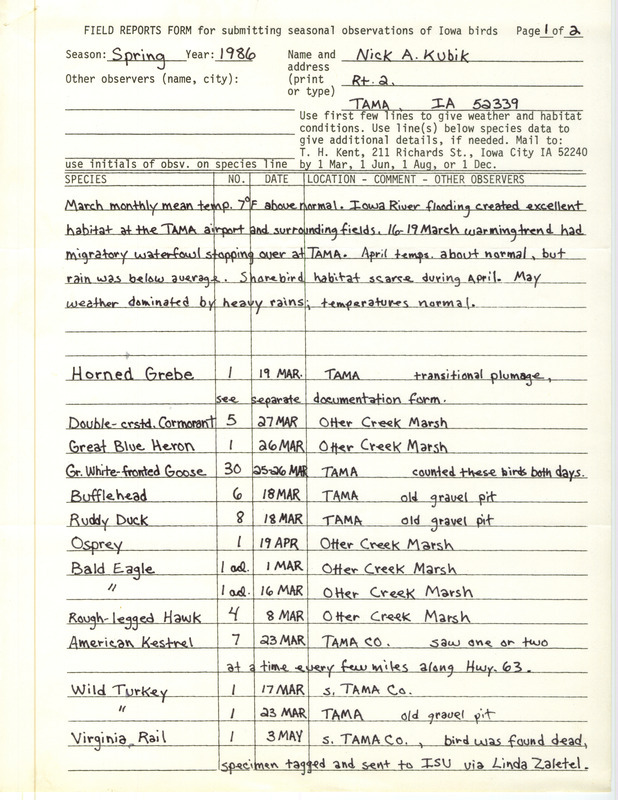 FIELD REPORTS FORM for submitting seasonal observations of Iowa birds Page 1 of 2
Season: Spring Year: 1986 Name and Nick A. Kubik
address
Other observers (name, city): (print Rt. 2.
or type)
TAMA, IA 52339
Use first few lines to give weather and habitat
conditions. Use line(s) below species data to
give additional details, if needed. Mail to:
T. H. Kent, 211 Richards St., Iowa City IA 52240
use initials of obsv. on species line by 1 Mar, 1 Jun, 1 Aug, or 1 Dec.
SPECIES NO. DATE LOCATION - COMMENT - OTHER OBSERVERS
March monthly mean temp. 7°F above normal. Iowa River flooding created excellent
habitat at the TAMA airport and surrounding fields. 16-19 March warming trend had
migratory waterfowl stopping over at TAMA. April temps. about normal, but
rain was below average. Shorebird habitat scarce during April. May
weather dominated by heavy rains; temperatures normal.
Horned Grebe 1 19 MAR. TAMA transitional plumage,
see separate documentation form.
Double-crstd. Cormorant 5 27 MAR Otter Creek Marsh
Great Blue Heron 1 26 MAR Otter Creek Marsh
Gr. White-fronted Goose 30 25-26 MAR TAMA counted these birds both days.
Bufflehead 6 18 MAR TAMA old gravel pit
Ruddy Duck 8 18 MAR TAMA old gravel pit
Osprey 1 19 APR Otter Creek Marsh
Bald Eagle 1 ad. 1 MAR Otter Creek Marsh
" 1 ad. 16 MAR Otter Creek Marsh
Rough-legged Hawk 4 8 MAR Otter Creek Marsh
American Kestrel 7 23 MAR TAMA CO. saw one or two
at a time every few miles along Hwy. 63.
Wild Turkey 1 17 MAR S. TAMA Co.
" 1 23 MAR TAMA old gravel pit
Virginia Rail 1 3 MAY S. TAMA Co., bird was found dead,
specimen tagged and sent to ISU via Linda Zaletel.